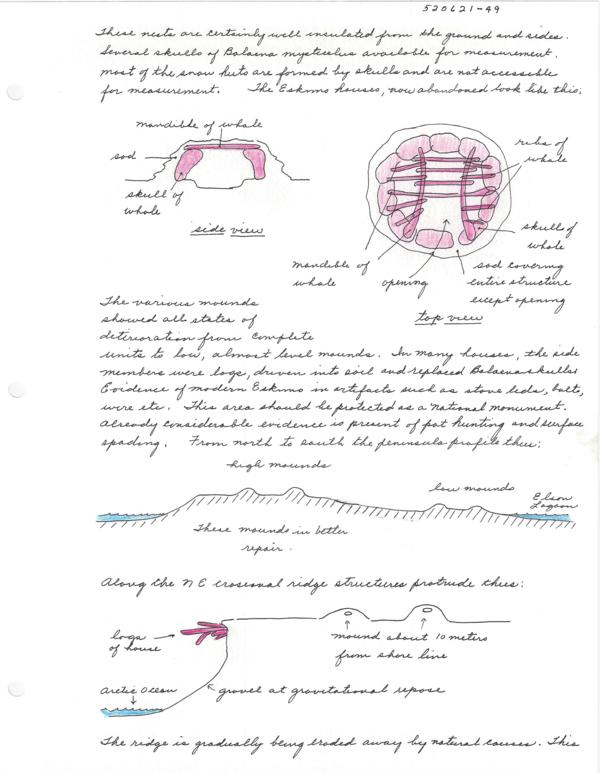 520621-49
These nests are certainly well insulated from the ground and sides.
Several skulls of Balaena mysticetus available for measurement.
most of the snow huts are formed by skulls and are not accessible
for measurement. The Eskimo houses, now abandoned look like this:
mandible of whale
sod
skull of
whale
side view
ribs of
whale
skulls of
whale
mandible of
whale
opening
sod covering
entire structure
except opening
top view
The various mounds
showed all states of
deterioration from complete
units to low, almost level mounds. In many houses, the side
members were logs, driven into soil and replaced Balaena skulls.
Evidence of modern Eskimo in artifacts such as stove lids, bolts,
wire etc. This area should be protected as a national monument.
Already considerable evidence is present of pot hunting and surface
spading. From north to south the peninsula profile thus:
high mounds
low mounds
Elson
Lagoon
These mounds in better
repair.
Along the NE erosional ridge structures protrude thus:
logs
of house
mound about 10 meters
from shore line
Arctic Ocean
gravel at gravitational repose
The ridge is gradually being eroded away by natural causes. This